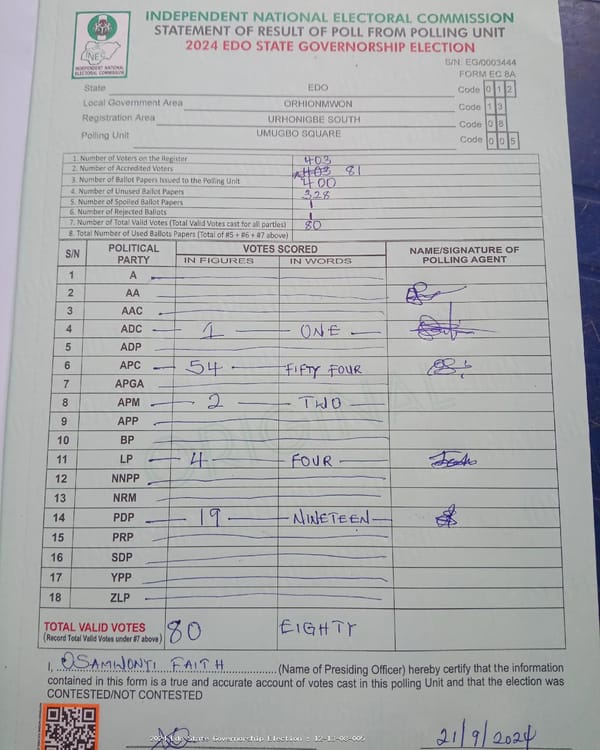 INDEPENDENT NATIONAL ELECTORAL COMMISSION
STATEMENT OF RESULT OF POLL FROM POLLING UNIT
2024 EDO STATE GOVERNORSHIP ELECTION
INEC
INDEPENDENT NATIONAL
ELECTORAL COMMISSION
S/N: EG/0003444
FORM EC 8A
State EDO Code 0 1 2
Local Government Area ORHIONMWON Code 1 3
Registration Area URHONIGBE SOUTH Code 0 8
Polling Unit UMUGBO SQUARE Code 0 0 5
1. Number of Voters on the Register 403
2. Number of Accredited Voters 403 81
3. Number of Ballot Papers Issued to the Polling Unit 400
4. Number of Unused Ballot Papers 328
5. Number of Spoiled Ballot Papers
6. Number of Rejected Ballots 1
7. Number of Total Valid Votes (Total Valid Votes cast for all parties) 80
8. Total Number of Used Ballots Papers (Total of #5 + #6 + #7 above)
S/N POLITICAL PARTY VOTES SCORED NAME/SIGNATURE OF POLLING AGENT
IN FIGURES IN WORDS
1 A
2 AA
3 AAC
4 ADC 1 ONE
5 ADP
6 APC 54 FIFTY FOUR
7 APGA
8 APM 2 TWO
9 APP
10 BP
11 LP 4 FOUR
12 NNPP
13 NRM
14 PDP 19 NINETEEN
15 PRP
16 SDP
17 YPP
18 ZLP
ORIGINAL
TOTAL VALID VOTES 80 EIGHTY
(Record Total Valid Votes under #7 above)
I, OSAMWONYI FAITH (Name of Presiding Officer) hereby certify that the information
contained in this form is a true and accurate account of votes cast in this polling Unit and that the election was
CONTESTED/NOT CONTESTED
2024 Edo State Governorship Election : 12-13-08-005
21/9/2024